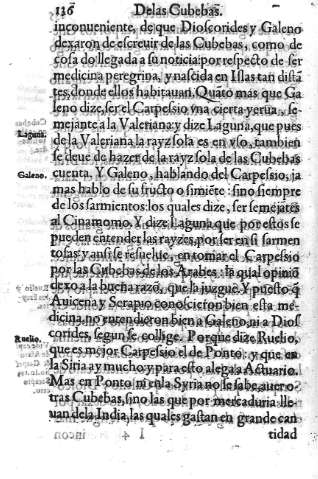 136 Delas Cubebas.
inconueniente, de que Dioscorides y Galeno
dexaron de escreuir de las Cubebas, como de
cosa do llegada a su noticia por respecto de ser
medicina peregrina, y nascida en Islas tan distã
tes, donde ellos habitauan. Quãto mas que Ga
leno dize, ser el Carpessio vna cierta yerua, se-
mejante a la Valeriana: y dize Laguna, que pues
Laguna.
de la Valeriana la rayz sola es en vso, tambien
se deue de hazer de la rayz sola de las Cubebas
Galeno.
cuenta. Y Galeno, hablando del Carpessio, ja
mas hablo de su fructo o simiẽte: sino siempre
de los sarmientos: los quales dize, ser semejãtes
al Cinamomo. Y dize Laguna, que por estos se
pueden entender las rayzes, por ser en si sarmen
tosas: y ansi se resuelue, en tomar el Carpessio
por las Cubebas de los Arabes: la qual opiniõ
dexo a la buena razõ, que la juzgue. Y puesto q̃
Auicena y Serapio conoscieron bien esta me-
dicina, no entendieron bien a Galeno, ni a Dios
corides, segun se collige. Porque dize Ruelio,
Ruelio.
que es mejor Carpessio el de Ponto: y que en
la Siria ay mucho, y para esto alega a Actuario.
Mas en Ponto ni en la Syria no se sabe, auer o-
tras Cubebas, sino las que por mercaduria lle-
uan de la India, las quales gastan en grande can
I 4 tidad